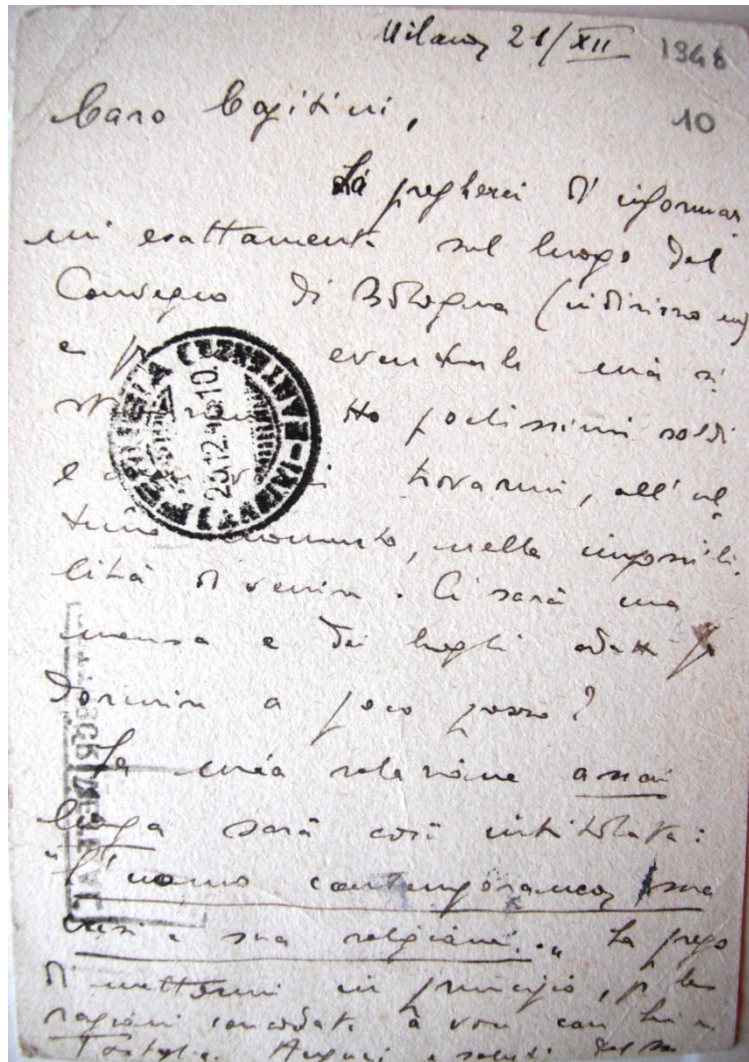 Milano, 21/XII 1946
10
Caro Capitini,
La pregherei d'informar
mi esattamente sul luogo del
Convegno di Bologna (indirizzo
e eventuale mia si
Ho pochissimi soldi
e trovarmi, all'ul
timo momento, nella impossibi
lità di venire. Ci sarà una
mensa e dei luoghi adatti p
dormire a poco prezzo?
La mia relazione assai
lunga sarà così intitolata:
"L'uomo contemporaneo, sua
crisi e sua religione.„ La prego
di mettermi in principio, p le
ragioni concordate a voce con
Auguri e saluti dal
PERUGIA
25.12.46.10